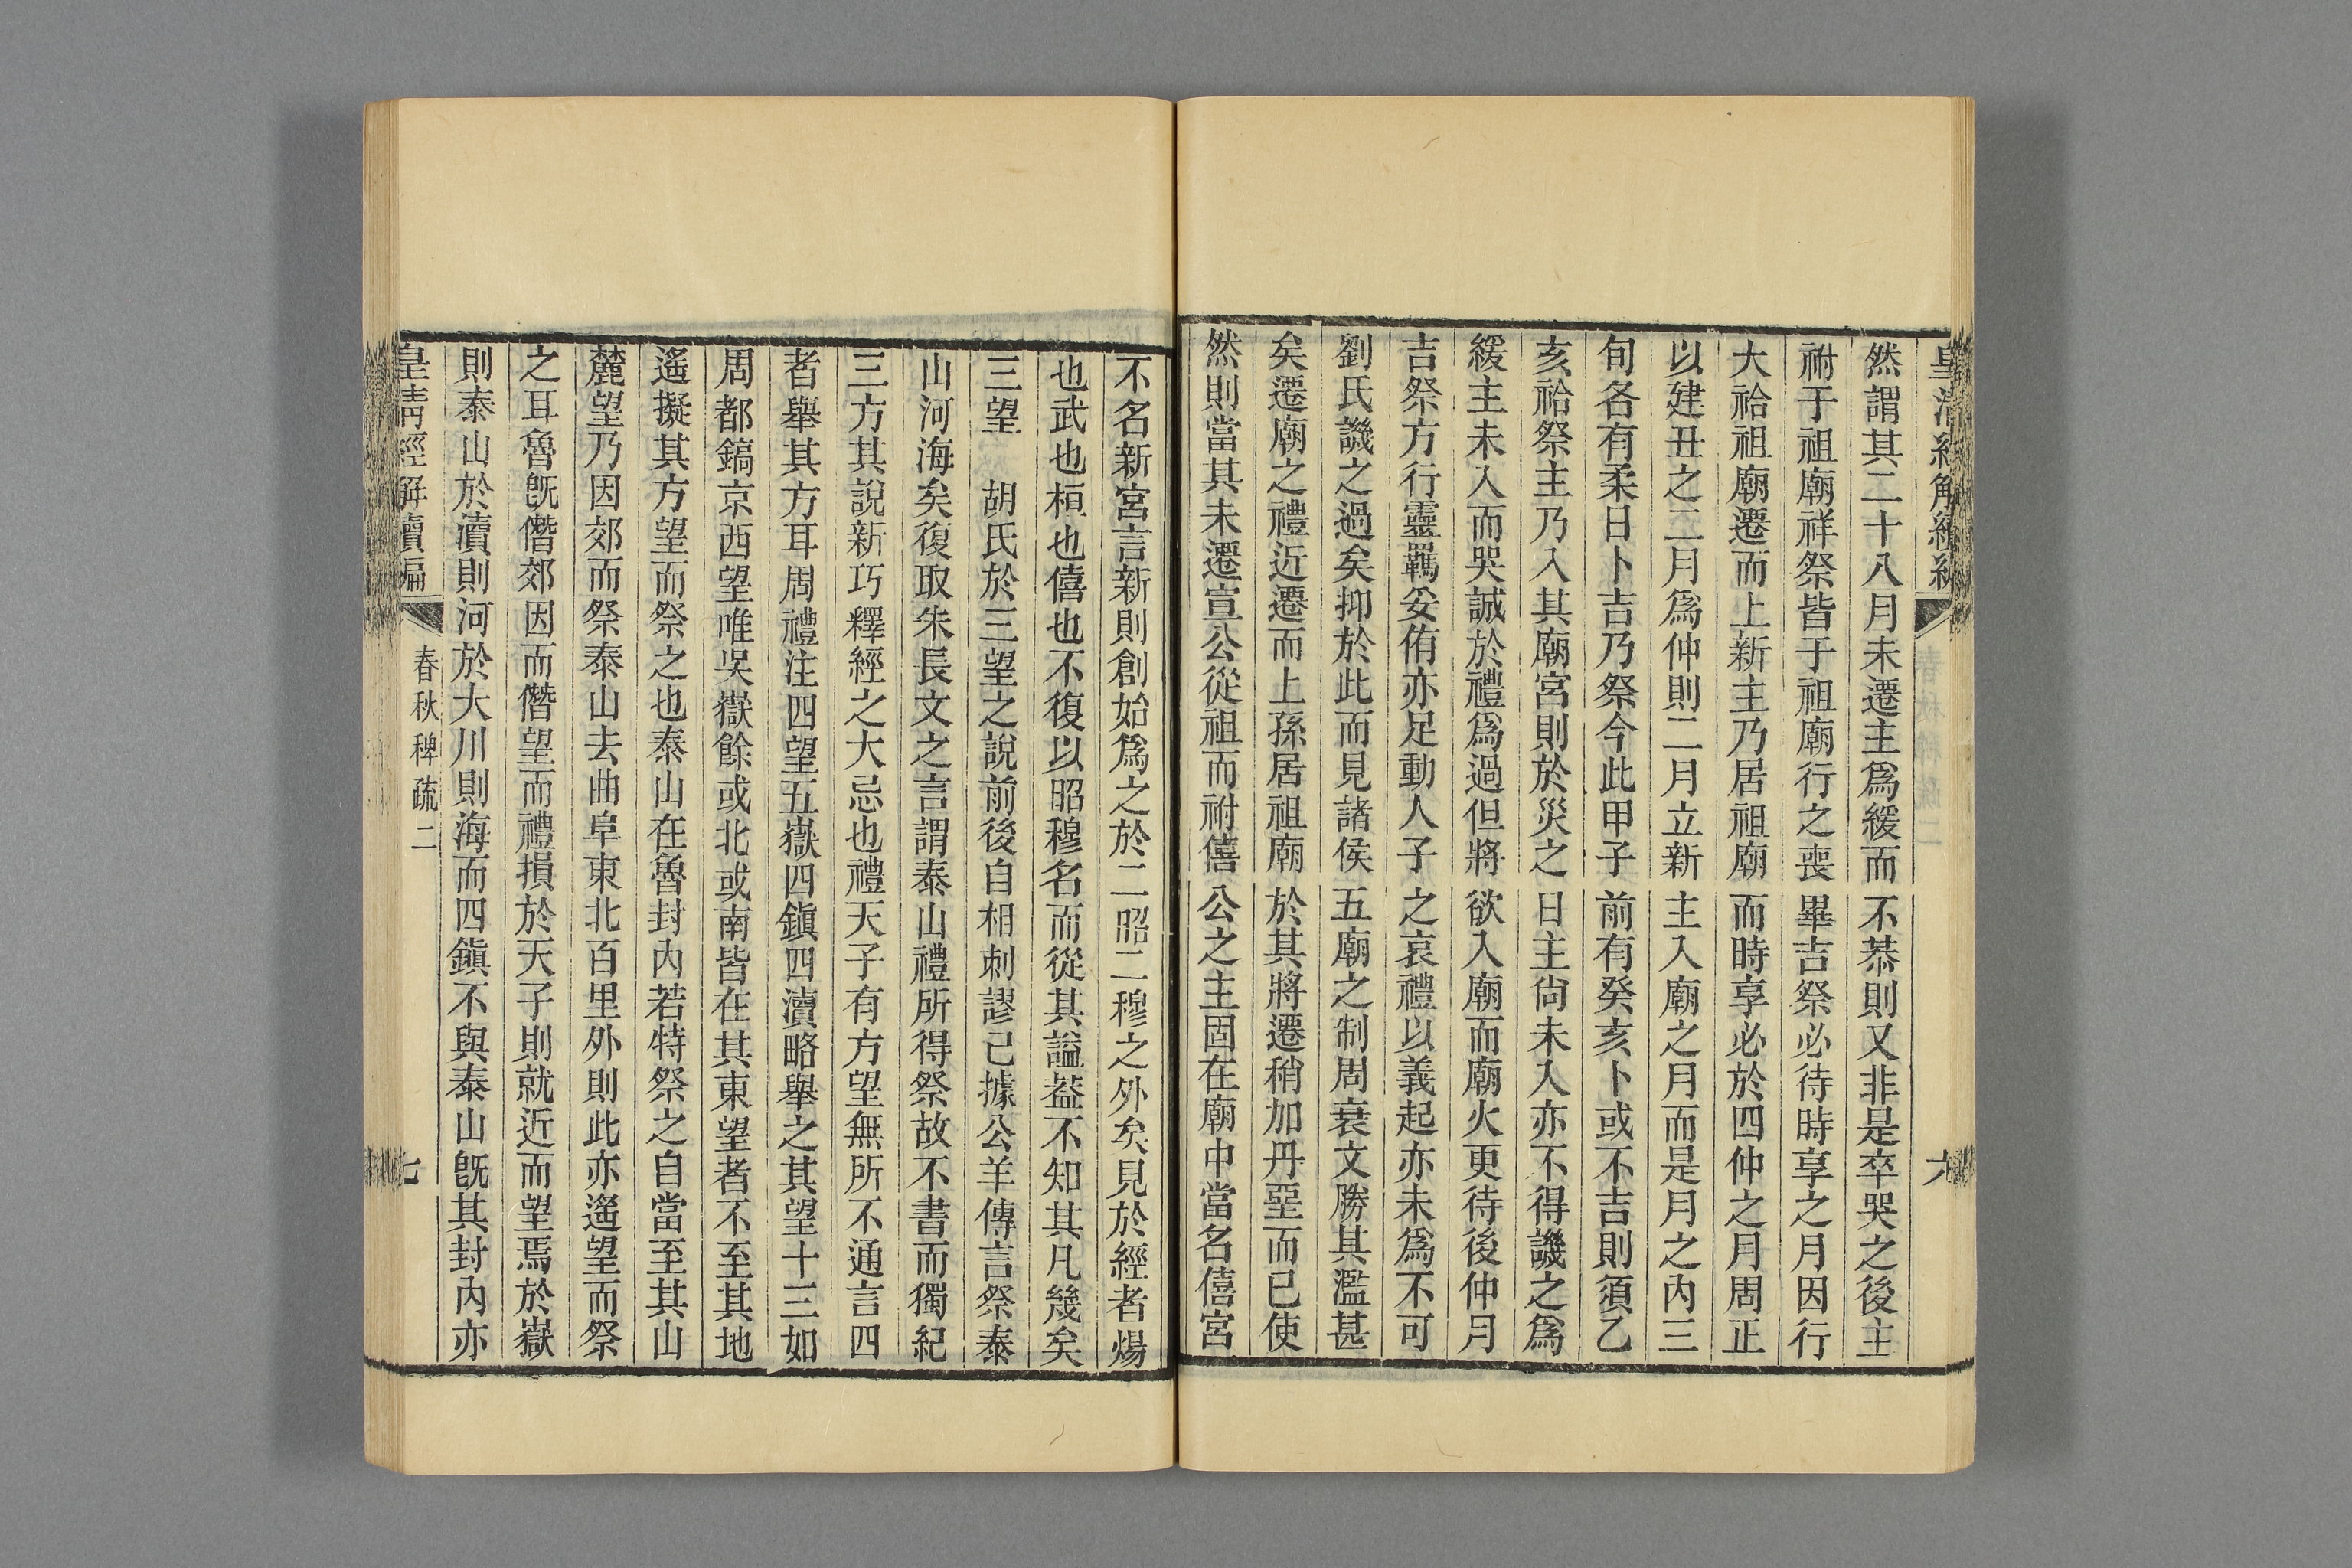 皇清經解續編
六
然謂其二十八月未遷主爲緩而不恭則又非是卒哭之後主
祔于祖廟祥祭皆于祖廟行之喪畢吉祭必待時享之月因行
大祫祖廟遷而上新主乃居祖廟而時享必於四仲之月周正
以建丑之二月爲仲則二月立新主入廟之月而是月之內三
旬各有柔日卜吉乃祭今此甲子前有癸亥卜或不吉則須乙
亥祫祭主乃入其廟宮則於災之日主尙未入亦不得譏之爲
緩主未入而哭誠於禮爲過但將欲入廟而廟火更待後仲月
吉祭方行靈羈妥侑亦足動人子之哀禮以義起亦未爲不可
劉氏譏之過矣抑於此而見諸侯五廟之制周衰文勝其濫甚
矣遷廟之禮近遷而上孫居祖廟於其將遷稍加丹堊而已使
然則當其未遷宣公從祖而祔僖公之主固在廟中當名僖宮
不名新宮言新則創始爲之於二昭二穆之外矣見於經者煬
也武也桓也僖也不復以昭穆名而從其謚葢不知其凡幾矣
三望　胡氏於三望之說前後自相刺謬己據公羊傳言祭泰
山河海矣復取朱長文之言謂泰山禮所得祭故不書而獨紀
三方其說新巧釋經之大忌也禮天子有方望無所不通言四
者舉其方耳周禮注四望五嶽四鎭四瀆略舉之其望十三如
周都鎬京西望唯吳嶽餘或北或南皆在其東望者不至其地
遙擬其方望而祭之也泰山在魯封內若特祭之自當至其山
麓望乃因郊而祭泰山去曲阜東北百里外則此亦遙望而祭
之耳魯旣僭郊因而僭望而禮損於天子則就近而望焉於嶽
則泰山於瀆則河於大川則海而四鎭不與泰山旣其封內亦
皇清經解續編
春秋稗疏二
七